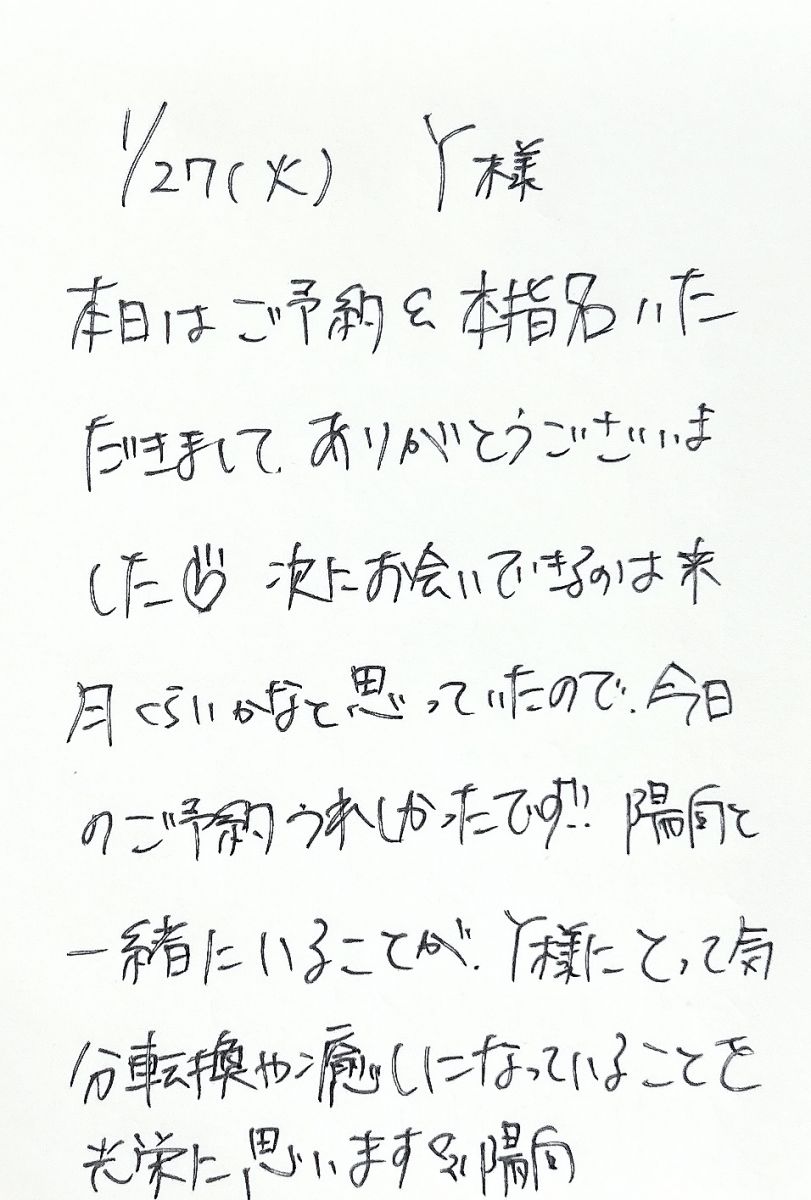 1/27(火) Y様
本日はご予約&本指名いた
だきまして、ありがとうございま
した♡ 次にお会いできるのは来
月くらいかなと思っていたので、今日
のご予約うれしかったです!! 陽向と
一緒にいることが、Y様にとって気
分転換や癒しになっていることを
光栄に思います 陽向